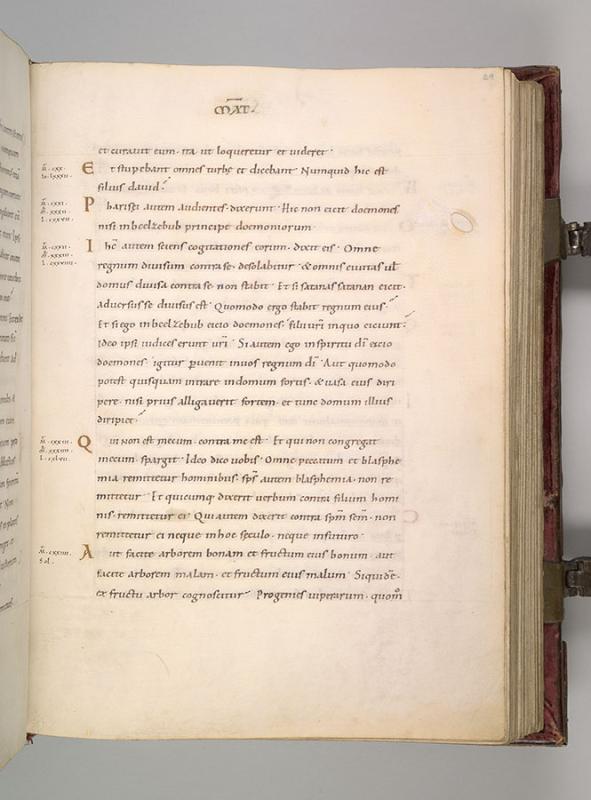 29
MAT̄.
et curavit eum. ita ut loqueretur et uideret.
m̄. cxx.
lu. lxxxii.
E t stupebant omnes turbe et dicebant. Numquid hic est
filius dauid.
m̄. cxxi.
P harisei autem audientes. dixerunt. Hic non eicit doemones
nisi in beelzebub principe doemoniorum.
m̄. cxxii.
I hc̄ autem sciens cogitationes eorum. dixit eis. Omne
regnum diuisum contra se. desolabitur. & omnis ciuitas ul̄
domus diuisa contra se. non stabit. Et si satanas satanan eicit.
aduersus se diuisus est. Quomodo ergo stabit regnum eius.
Et si ego in beelzebub eicio doemones. filii uri in quo eiciunt.
ideo ipsi iudices erunt uri. Si autem ego in spiritu di eicio
doemones. igitur puenit in uos regnum di. Aut quomodo
potest quisquam intrare in domum fortis. & uasa eius diri
pere. nisi prius alligauerit fortem. et tunc domum illius
diripiet.
m̄. cxxiii.
Q ui non est mecum. contra me est. Et qui non congregat
mecum. spargit. Ideo dico uobis. Omne peccatum et blasphe
mia remittetur hominibus. sps autem blasphemia. non re
mittetur. Et quicumq; dixerit uerbum contra filium homi
nis. remittetur ei. Qui autem dixerit contra spm scm. non
remittetur ei neque in hoc seculo. neque in futuro.
m̄. cxxiiii.
Sol.
A ut facite arborem bonam et fructum eius bonum. aut
facite arborem malam. et fructum eius malum. Siquidē.
ex fructu arbor cognoscitur. Progenies uiperarum. quom̊